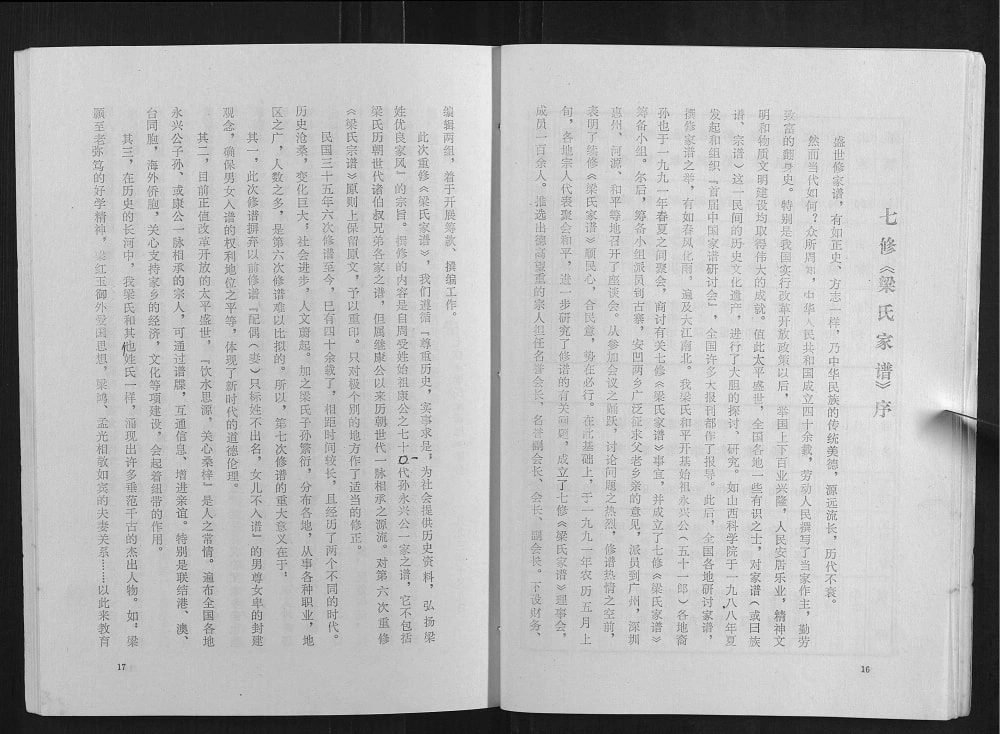 七修《梁氏家谱》序
盛世修家谱，有如正史、方志一样，乃中华民族的传统美德，源远流长，历代不衰。
然而当代如何？众所周知，中华人民共和国成立四十余载，劳动人民撰写了当家作主，勤劳
致富的翻身史。特别是我国实行改革开放政策以后，举国上下百业兴隆，人民安居乐业，精神文
明和物质文明建设均取得伟大的成就。值此太平盛世，全国各地一些有识之士，对家谱（或曰族
谱、宗谱）这一民间的历史文化遗产，进行了大胆的探讨、研究。如山西科学院于一九八八年夏
发起和组织『首届中国家谱研讨会』，全国许多大报刊都作了报导。此后，全国各地研讨家谱，
撰修家谱之举，有如春风化雨，遍及大江南北。我梁氏和平开基始祖永兴公（五十一郎）各地裔
孙也于一九九一年春夏之间聚会，商讨有关七修《梁氏家谱》事宜，并成立了七修《梁氏家谱》
筹备小组。尔后，筹备小组派员到古寨，安凹两乡广泛征求父老乡亲的意见，派员到广州，深圳
惠州、河源、和平等地召开了座谈会。从参加会议之踊跃，讨论问题之热烈，修谱热情之空前，
表明了续修《梁氏家谱》顺民心，合民意，势在必行。在此基础上，于一九九一年农历五月上
旬，各地宗人代表聚会和平，进一步研究了修谱的有关问题，成立了七修《梁氏家谱》理事会，
成员一百余人。推选出德高望重的宗人担任名誉会长、名誉副会长、会长、副会长。下设财务、
16
编辑两组，着于开展筹款、撰编工作。
此次重修《梁氏家谱》，我们遵循『尊重历史，实事求是，为社会提供历史资料，弘扬梁
姓优良家风』的宗旨。撰修的内容是自周受姓始祖康公之七十一代孙永兴公一家之谱，它不包括
梁氏历朝世代诸伯叔兄弟各家之谱，但属继康公以来历朝世代一脉相承之源流。对第六次重修
《梁氏宗谱》原则上保留原文，予以重印。只对极个别的地方作了适当的修正。
民国三十五年六次修谱至今，已有四十余载了，相距时间较长，且经历了两个不同的时代。
历史沧桑，变化巨大，社会进步，人文蔚起。加之梁氏子孙繁衍，分布各地，从事各种职业，地
区之广，人数之多，是第六次修谱难以比拟的。所以，第七次修谱的重大意义在于：
其一，此次修谱摒弃以前修谱『配偶（妻）只标姓不出名，女儿不入谱』的男尊女卑的封建
观念，确保男女入谱的权利地位之平等，体现了新时代的道德伦理。
其二，目前正值改革开放的太平盛世，『饮水思源，关心桑梓』是人之常情。遍布全国各地
永兴公子孙、或康公一脉相承的宗人，可通过谱牒，互通信息、增进亲谊。特别是联结港、澳、
台同胞，海外侨胞，关心支持家乡的经济，文化等项建设，会起着纽带的作用。
其三，在历史的长河中，我梁氏和其他姓氏一样，涌现出许多垂范千古的杰出人物。如：梁
顾至老弥笃的好学精神，梁红玉御外爱国思想，梁鸿、孟光相敬如宾的夫妻关系……以此来教育
17